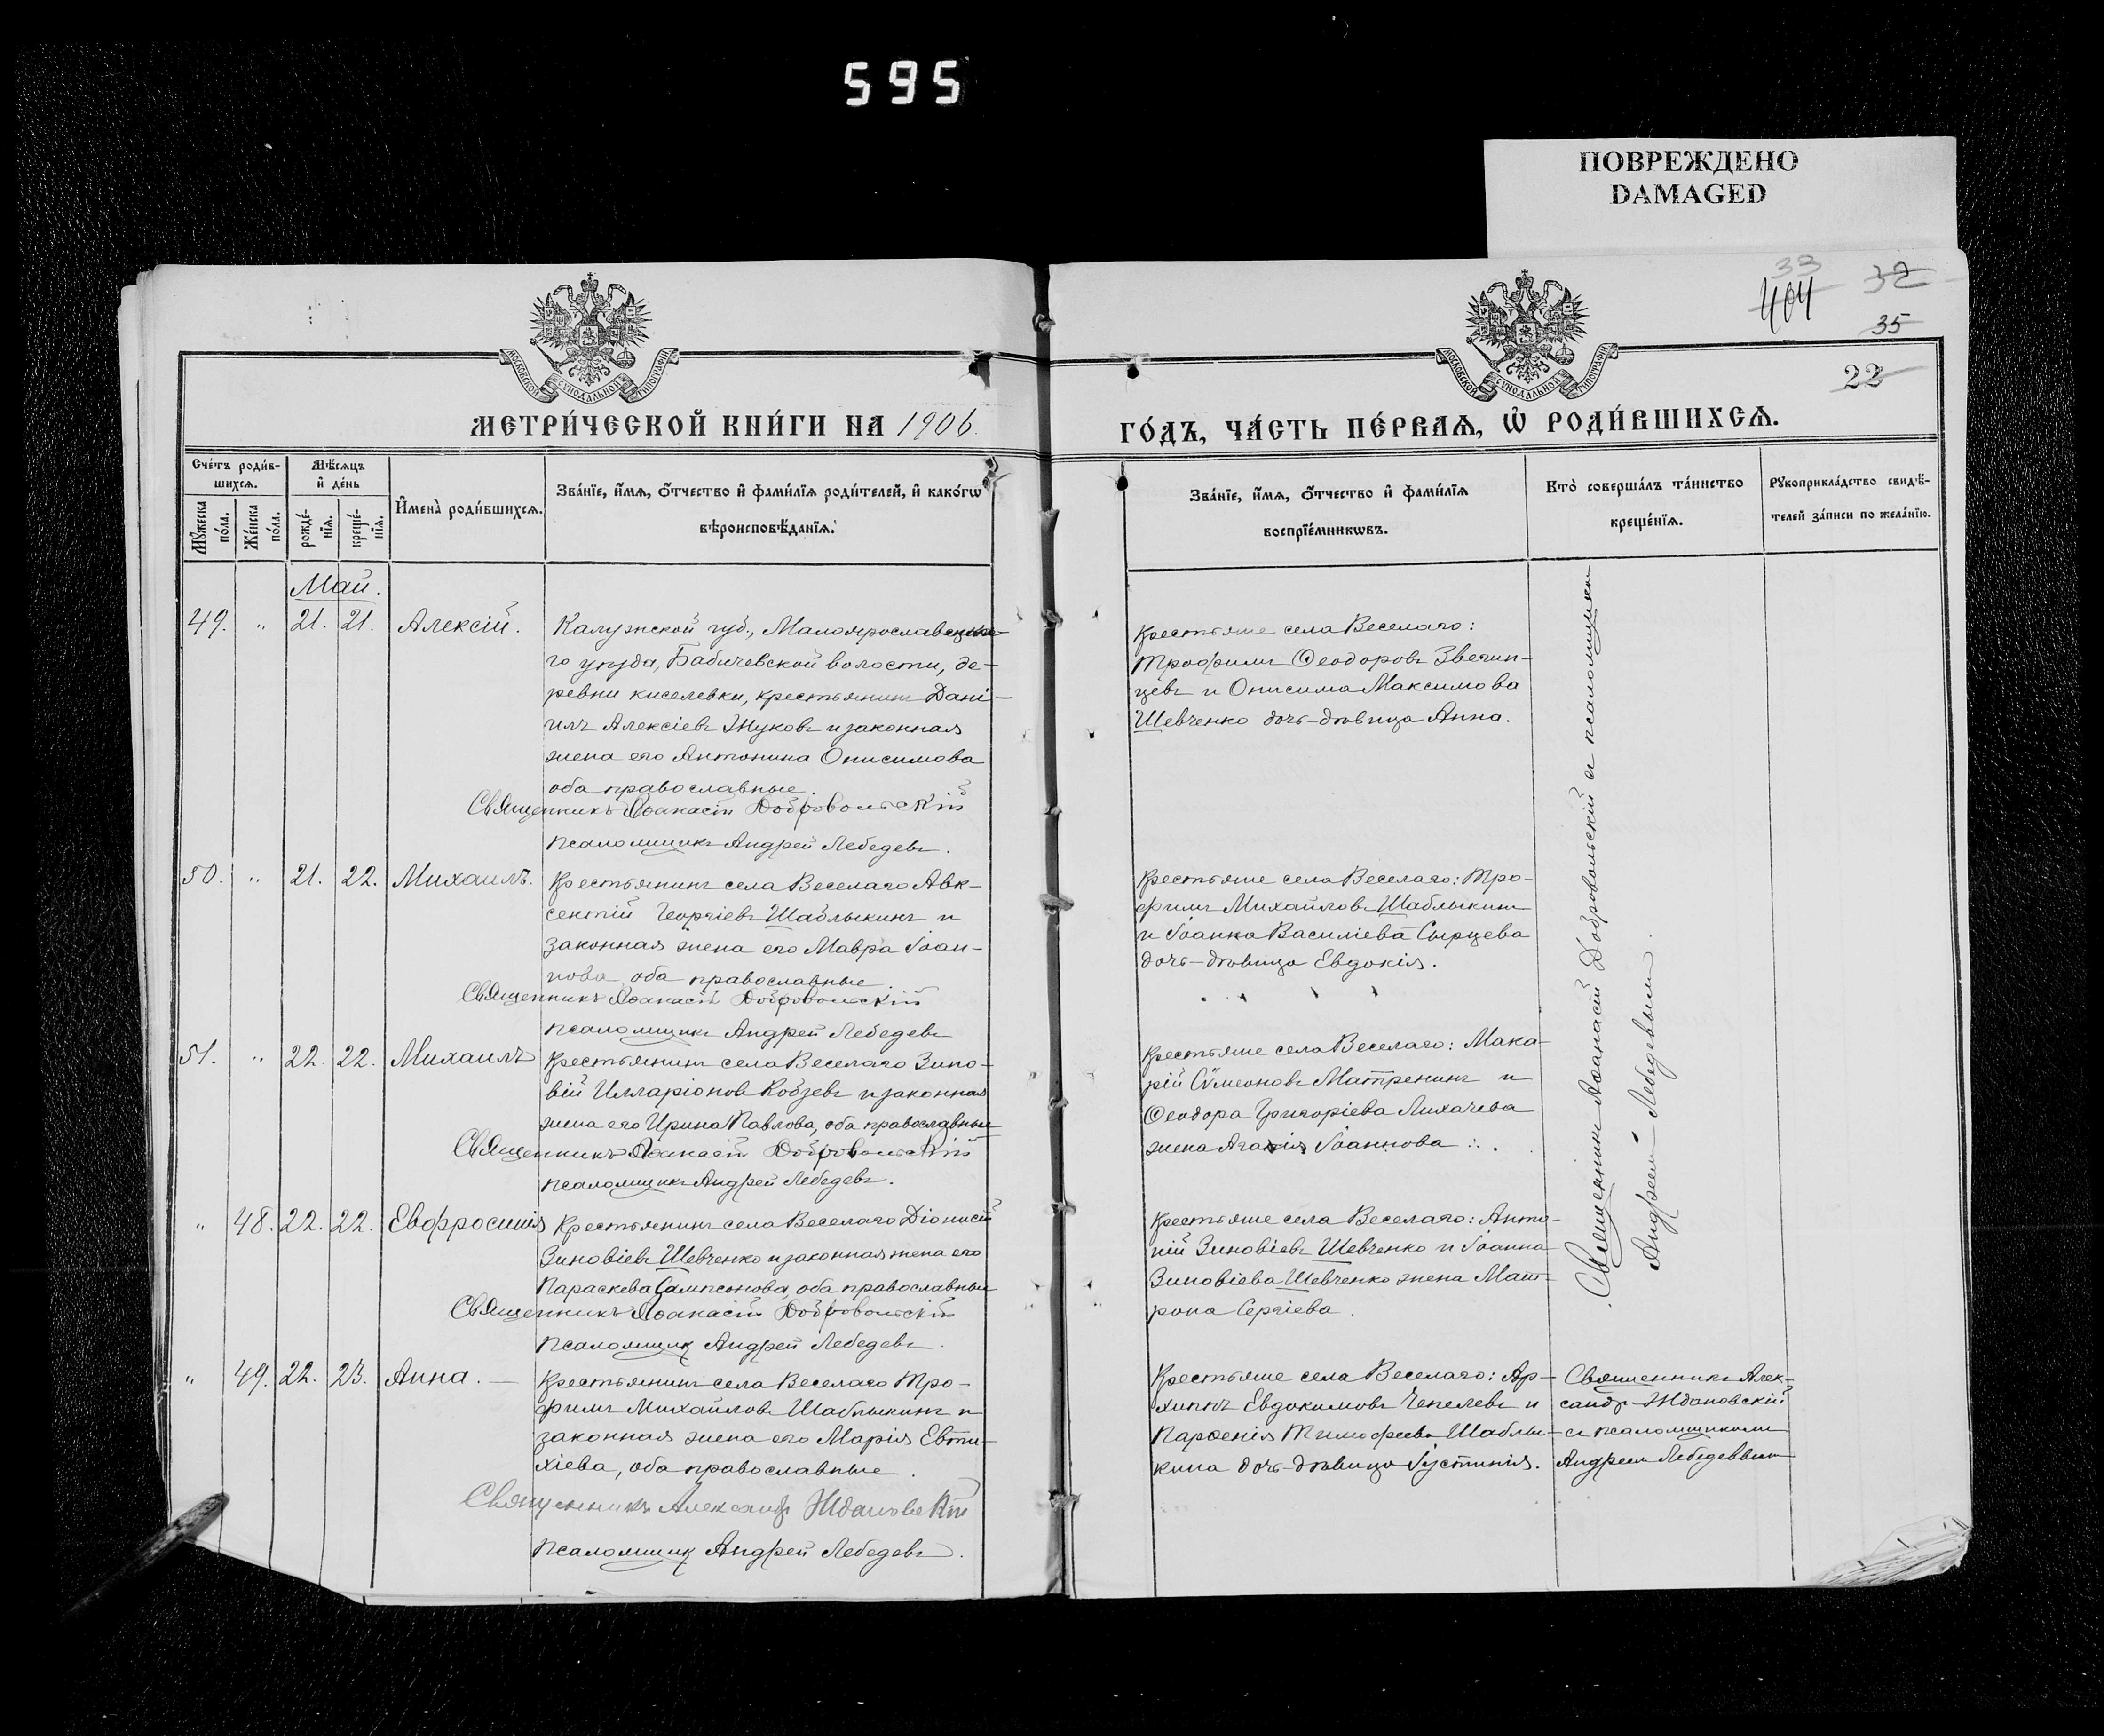 595
ПОВРЕЖДЕНО
DAMAGED
33
32
404
35
22
МОСКОВСКОЙ СѴНОДАЛЬНОЙ ТИПОГРАФІИ
МОСКОВСКОЙ СѴНОДАЛЬНОЙ ТИПОГРАФІИ
МЕТРИ́ЧЕСКОЙ КНИ́ГИ НА 1906.
ГО́ДЪ, ЧА́СТЬ ПЕ́РВАѦ, Ѡ҆ РОДИ́ВШИХСѦ.
Сче́тъ роди́в-
шихсѧ.
Мꙋ́жеска по́ла.
Же́нска по́ла.
Мѣ́сѧцъ
и҆ де́нь
рожде́-
нїѧ.
креще́-
нїѧ.
И҆мена̀ роди́вшихсѧ.
Зва́нїе, и҆́мѧ, ѻ҆́тчество и҆ фами́лїѧ роди́телей, и҆ како́гѡ
вѣроисповѣ́данїѧ.
Зва́нїе, и҆́мѧ, ѻ҆́тчество и҆ фами́лїѧ
воспрїе́мникѡвъ.
Кто̀ соверша́лъ та́инство
креще́нїѧ.
Рꙋкоприкла́дство свидѣ́-
телей за́писи по жела́нїю.
Май.
49. „ 21. 21. Алексій. Калужской губ., Малоярославецка-
го уѣзда, Бабичевской волости, де-
ревни Киселевки, крестьянинъ Дані-
илъ Алексіевъ Жуковъ и законная
жена его Антонина Онисимова
оба православные.
Священникъ Аѳанасій Добровольскій
Псаломщикъ Андрей Лебедевъ.
Крестьяне села Веселаго:
Трофимъ Ѳеодоровъ Звегин-
цевъ и Онисима Максимова
Шевченко дочь-дѣвица Анна.
50. „ 21. 22. Михаилъ. Крестьянинъ села Веселаго Авк-
сентій Георгіевъ Шаблыкинъ и
законная жена его Мавра Іоан-
нова, оба православные.
Священникъ Аѳанасій Добровольскій
Псаломщикъ Андрей Лебедевъ
Крестьяне села Веселаго: Тро-
фимъ Михайловъ Шаблыкинъ
и Іоанна Василіева Сырцева
дочь-дѣвица Евдокія.
51. „ 22. 22. Михаилъ Крестьянинъ села Веселаго Зино-
вій Илларіоновъ Кобзевъ и законная
жена его Ирина Павлова, оба православные
Священникъ Аѳанасій Добровольскій
Псаломщикъ Андрей Лебедевъ.
Крестьяне села Веселаго: Мака-
рій Сѵмеоновъ Матренинъ и
Ѳеодора Григоріева Лихачева
жена Агаѳія Іоаннова
„ 48. 22. 22. Евфросинія Крестьянинъ села Веселаго Діонисій
Зиновіевъ Шевченко и законная жена его
Параскева Сампсонова, оба православные
Священникъ Аѳанасій Добровольскій
Псаломщикъ Андрей Лебедевъ.
Крестьяне села Веселаго: Анто-
ній Зиновіевъ Шевченко и Іоанна
Зиновіева Шевченко жена Мат-
рона Сергіева.
Священникъ Аѳанасій Добровольскій съ псаломщикомъ
Андреемъ Лебедевымъ.
„ 49. 22. 23. Анна. — Крестьянинъ села Веселаго Тро-
фимъ Михайловъ Шаблыкинъ и
законная жена его Марія Евти-
хіева, оба православные.
Священникъ Александръ Ждановскій
Псаломщикъ Андрей Лебедевъ.
Крестьяне села Веселаго: Ар-
хиппъ Евдокимовъ Чепелевъ и
Парѳенія Тимофеева Шаблы-
кина дочь-дѣвица Іустинія.
Священникъ Алек-
сандръ Ждановскій
съ псаломщикомъ
Андреемъ Лебедевымъ